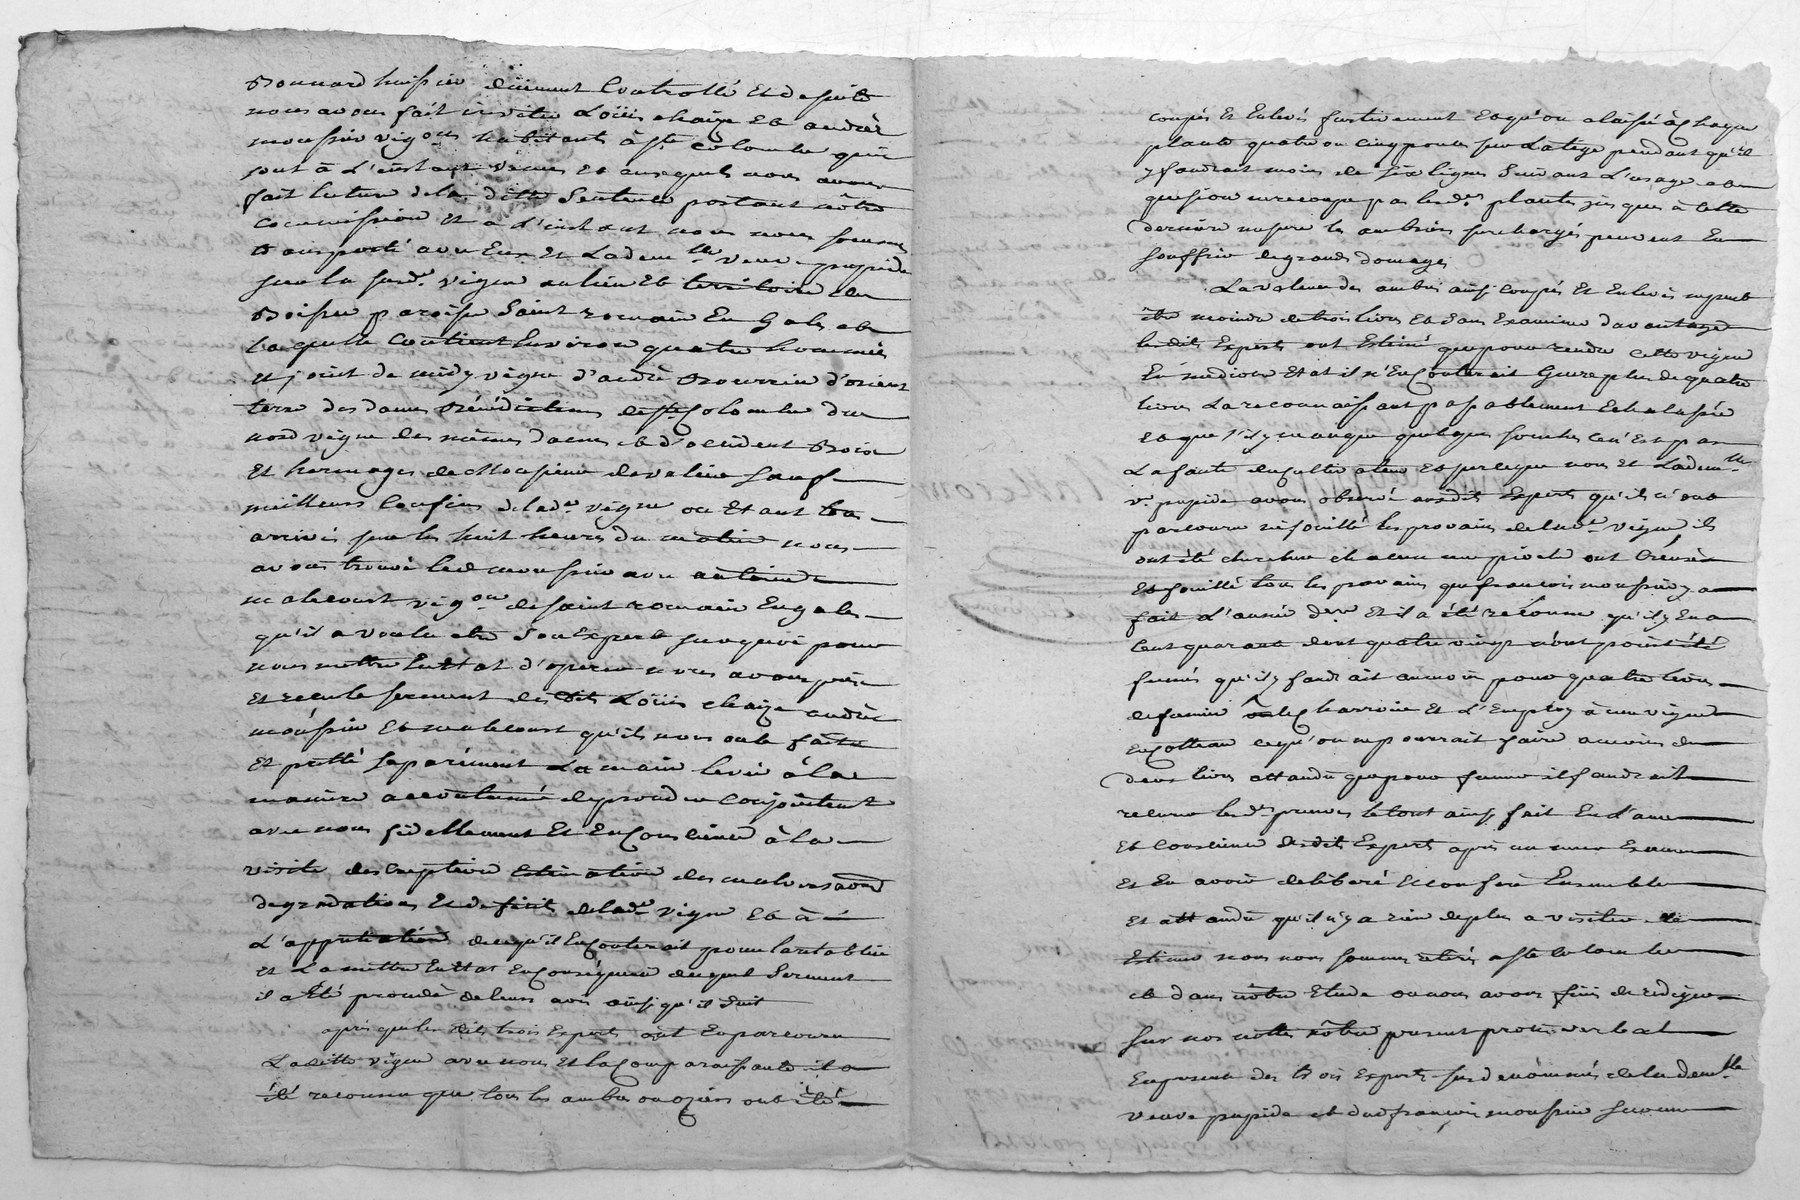 Bonnard huissier düement Controllé et de suite
nous avons fait inviter Loüis chaize et andré
moussin vig.ons habitants à S.te Colombe qui
sont à L'instant venus et auxquels nous avons
fait lecture de la ditte Sentence portant nôtre
Commission et à L'instant nous nous sommes
transporté avec Eux et Lad.e veuve pupide
sur la susd.e vigne au lieu et territoire de
Boissee paroisse Saint romain En Gale et
laquelle Contient Environ quatre hommées
et joint de midy vigne d'andré Bourrin d'orient
terre des dames Bénédictines de S.te Colombe du
nord vigne des mêmes dames et d'occident Bois
et hermages de Monsieur de valin sauf
meilleurs Confins de lad.e vigne ou Etant
arrivés sur les huit heures du matin nous
avons trouvé led moussin avec antoine
malecourt vig.on de saint romain Engale
qu'il a voulu etre Son Expert suroquoi pour
nous mettre En Etat d'operer nous avons pris
et recu le serment des dits Loüis chaize andré
moussin et malecourt qu'ils nous ont fait
et pretté Separément La main levée à la
maniere accoutumée de proceder Conjointement
avec nous fidellement et En Conscience à la
visite description Estimation des malversations
degradations et deficits de lad.e vigne et à
L'appretiation de ce qu'il En Couterait pour la rétablir
et La mettre En Etat En Conséquence duquel Serment
il a Eté procedé de leurs avis ainsy qu'il Suit
après que les dits trois Experts ont Eu parcouru
La ditte vigne avec nous et la Comparaissante il a
été reconnu que tous les aubres ou oziers ont été
coupés et Enlevés furtivement et qu'on a laissé à chaque
plante quatre ou cinq pouces sur La tige pendant qu'il
y faudrait moins de six lignes Suivant L'usage et
que si on ne recoupe pas lesd.s plantes jusques à cette
derniere mesure les aubriers surchargés peuvent En
souffrir de grands domages
La valeur des aubres ainsy coupés et Enlevés
être moindre de trois livres et sans Examiner davantage
les dits Experts ont Estimé que pour rendre cette vigne
En mediocre Etat il n'En Couterait Guere plus de quatre
livres La reconnaissant passablement Echalassée
et que s'il y manque quelques souches ce n'est pas
La faute du cultivateur et sur ce que nous et Lad.elle
v.e pupide avons observé auxdits Experts qu'ils n'ont
parcouru ni fouillé les provains de lad.e vigne ils
ont été chercher chacun une pioche ont Creusé
et fouillé tous les provains que francois moussin y a
fait L'année der.re et il a été reconnu qu'il y En a
Cent quarante dont quatre vingt n'ont point été
fumés qu'il y faudrait au moins pour quatre livres
de fumier le Charroir et L'Employ à cause
En Coteau ce qu'on ne pourrait faire a moins de
deux livres attandu que pour fumer il faudrait
recurer lesd.s le tout ainsy fait En L'ame
et Conscience desdits Experts après un mur Examen
et En avoir deliberé et conferé Ensemble
et attandu qu'il n'y a rien de plus a visiter ni
Estimer nous nous sommes retirés a S.te Colombe
et dans nôtre Etude ou nous avons finis de rédiger
sur nos nottes nôtre present procès verbal
En presence des trois Experts susdenommés de la dem.lle
veuve pupide et dud francois moussin